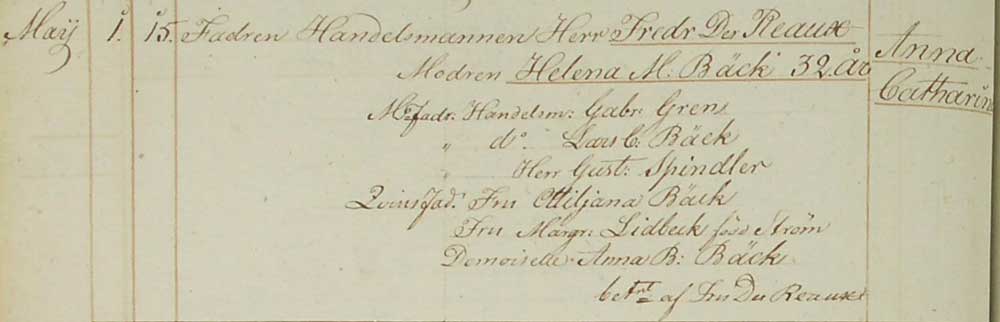 Maij 1. 15. Fadren Handelsmannen Herr Fredr Des Reaux Anna
Modren Helena M: Bäck 32 år Catharin
M:fadr: Handelsm: Gabr: Grens
" d:o Lars C: Bäck
Herr Gust: Spindler
Qvinsfad: Fru Ottiljana Bäck
Fru Margr: Lidbeck född Ström
Demoiselle Anna B: Bäck
af Fru Des Reaux